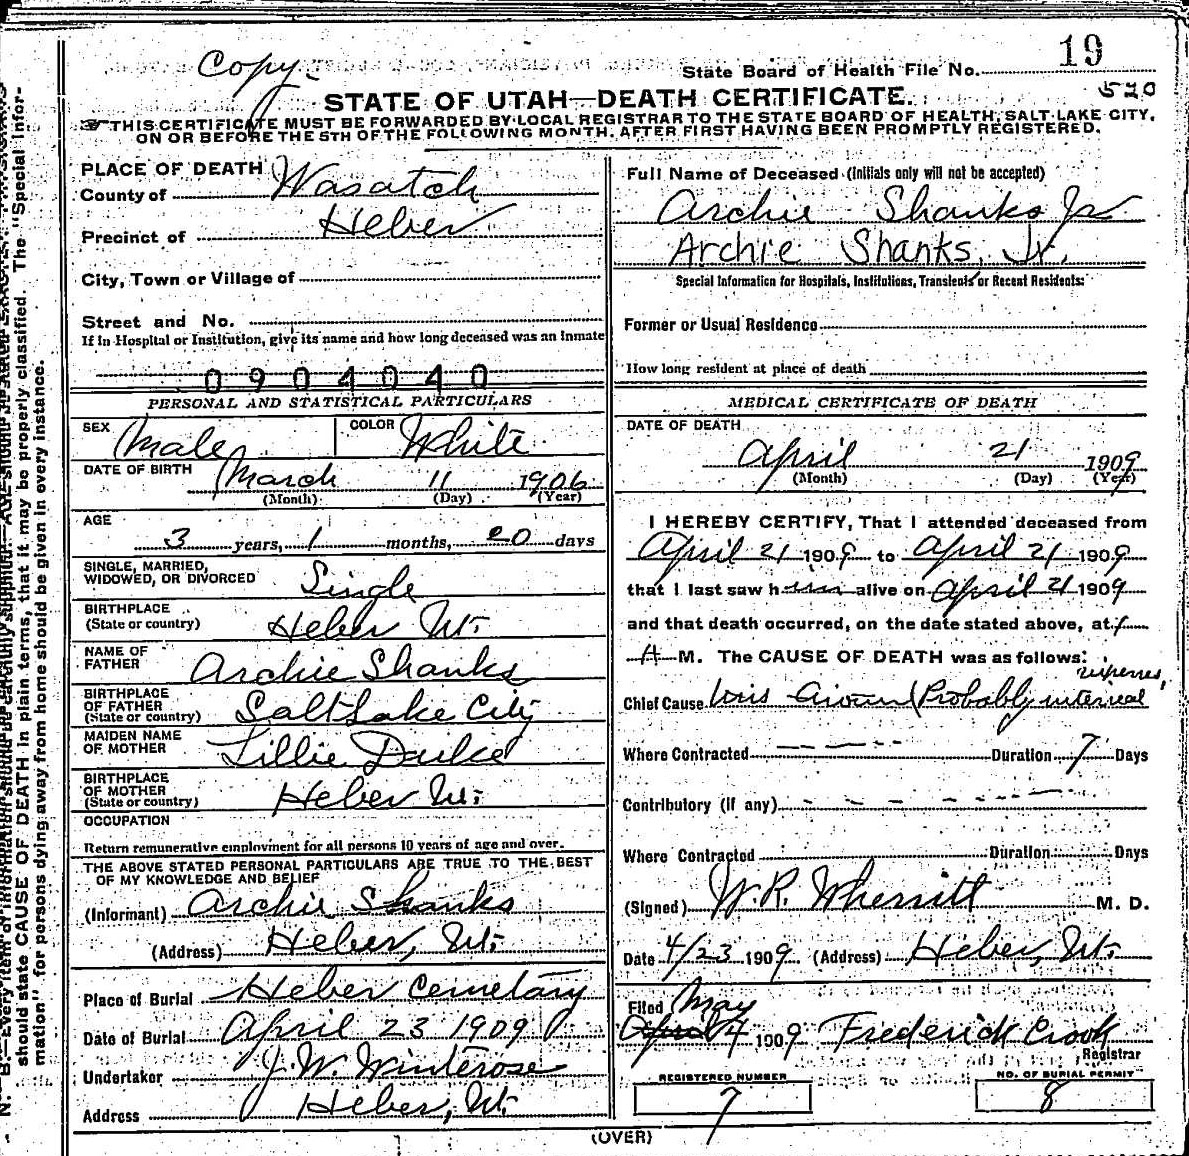 Copy
State Board of Health File No. 19
520
STATE OF UTAH—DEATH CERTIFICATE.
THIS CERTIFICATE MUST BE FORWARDED BY LOCAL REGISTRAR TO THE STATE BOARD OF HEALTH, SALT LAKE CITY,
ON OR BEFORE THE 5TH OF THE FOLLOWING MONTH, AFTER FIRST HAVING BEEN PROMPTLY REGISTERED.
PLACE OF DEATH
County of Wasatch
Precinct of Heber
City, Town or Village of
Street and No.
If in Hospital or Institution, give its name and how long deceased was an inmate
0904040
PERSONAL AND STATISTICAL PARTICULARS
SEX Male COLOR White
DATE OF BIRTH March 11 1906
(Month) (Day) (Year)
AGE
3 years, 1 months, 20 days
SINGLE, MARRIED,
WIDOWED, OR DIVORCED Single
BIRTHPLACE
(State or country) Heber Ut.
NAME OF
FATHER Archie Shanks
BIRTHPLACE
OF FATHER
(State or country) Salt Lake City
MAIDEN NAME
OF MOTHER Lillie Duke
BIRTHPLACE
OF MOTHER
(State or country) Heber Ut.
OCCUPATION
Return remunerative employment for all persons 10 years of age and over.
THE ABOVE STATED PERSONAL PARTICULARS ARE TRUE TO THE BEST
OF MY KNOWLEDGE AND BELIEF
(Informant) Archie Shanks
(Address) Heber, Ut.
Place of Burial Heber Cemetary
Date of Burial April 23 1909
Undertaker J. W. Winterose
Address Heber, Ut.
Full Name of Deceased (Initials only will not be accepted)
Archie Shanks Jr
Archie Shanks, Jr.
Special Information for Hospitals, Institutions, Transients or Recent Residents:
Former or Usual Residence
How long resident at place of death
MEDICAL CERTIFICATE OF DEATH
DATE OF DEATH
April 21 1909
(Month) (Day) (Year)
I HEREBY CERTIFY, That I attended deceased from
April 21 1909 to April 21 1909
that I last saw h alive on April 21 1909
and that death occurred, on the date stated above, at
A M. The CAUSE OF DEATH was as follows:
Chief Cause (Probably internal
Where Contracted Duration 7 Days
Contributory (if any)
Where Contracted Duration Days
(Signed) W. R. Wherritt M. D.
Date 4/23 1909 (Address) Heber, Ut.
Filed May
April 4 1909 Frederick Crook
Registrar
REGISTERED NUMBER
7
NO. OF BURIAL PERMIT
8
(OVER)
should state CAUSE OF DEATH in plain terms, that it may be properly classified. The "Special Infor-
mation" for persons dying away from home should be given in every instance.